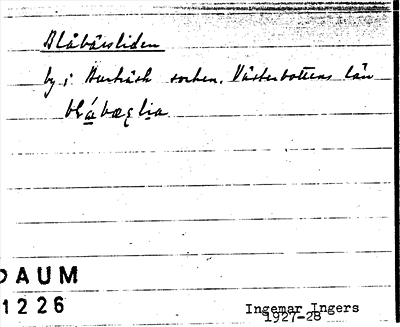 Blåbärsliden
by i Burträsk socken. Västerbottens län
DAUM
1226
Ingemar Ingers
1927-28